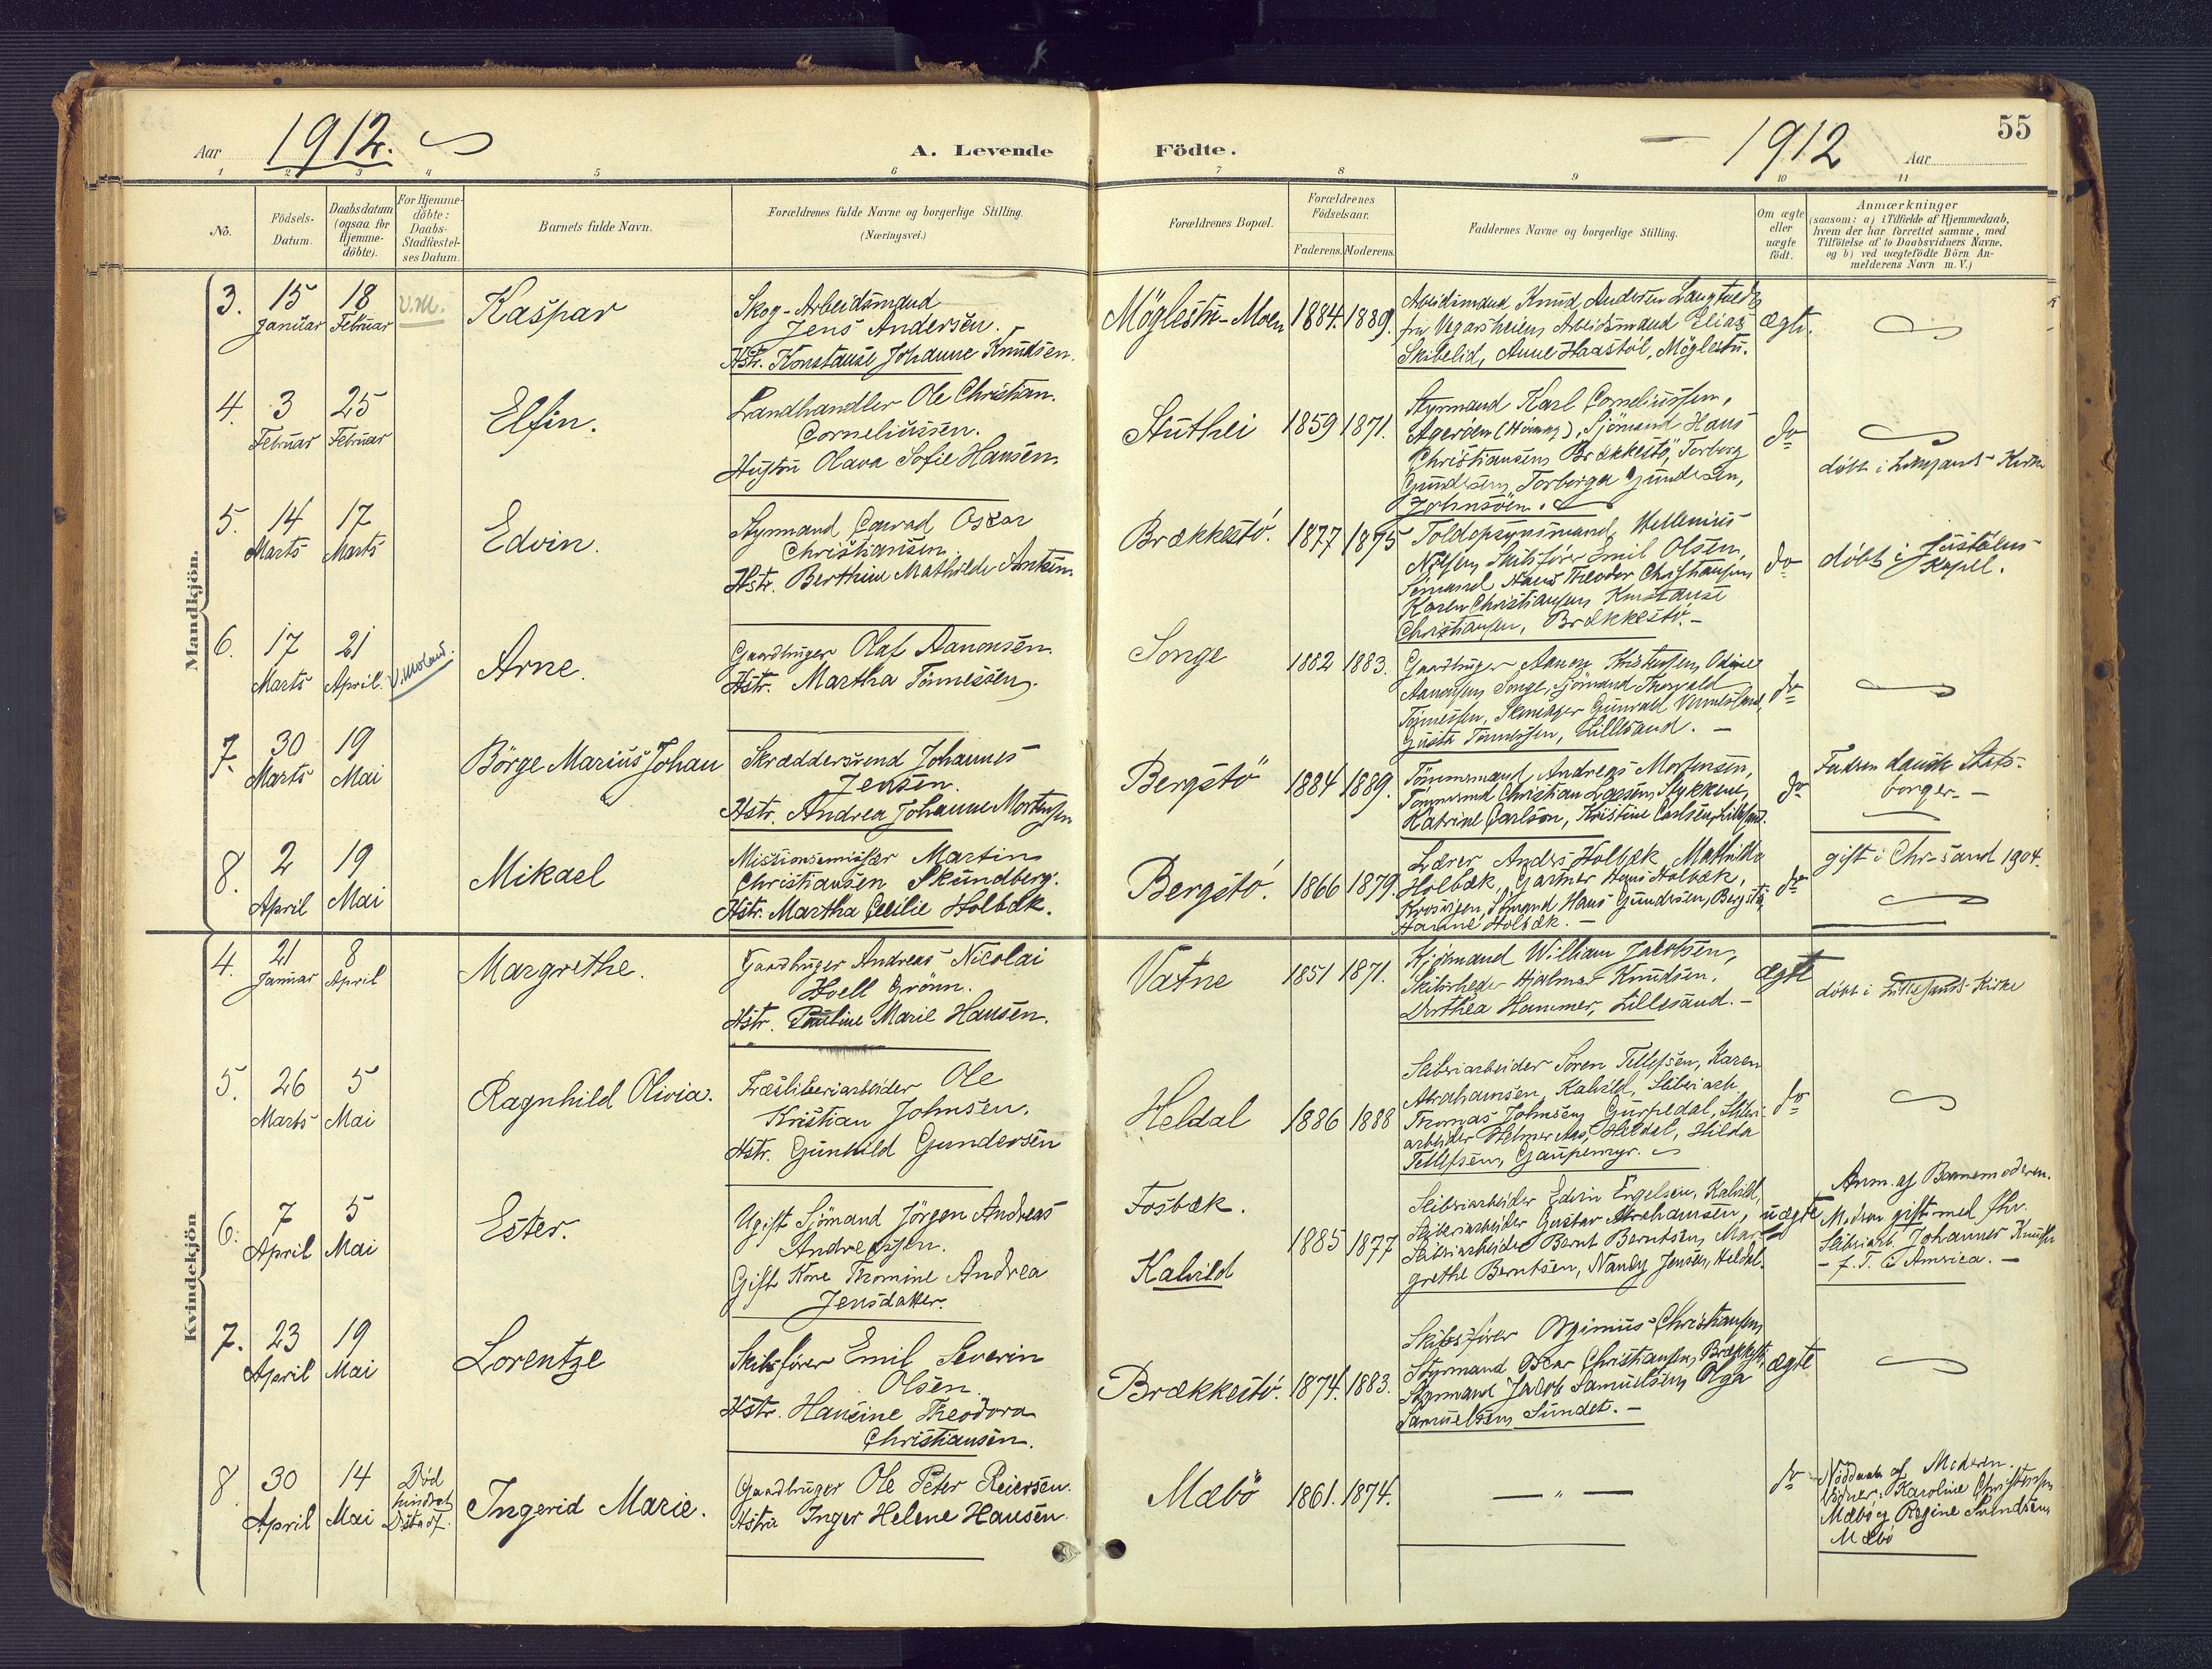 Aar 1912. A. Levende Födte. 1912 Aar 55
1 2 3 4 5 6 7 8 9 10 11
No.
Födsels-Datum.
Daabsdatum (ogsaa for Hjemme-döbte).
For Hjemme-döbte: Daabs-Stadfæstel-ses Datum.
Barnets fulde Navn.
Forældrenes fulde Navne og borgerlige Stilling.
(Næringsvei.)
Forældrenes Bopæl.
Forældrenes Födselsaar.
Faderens. Moderens.
Faddernes Navne og borgerlige Stilling.
Om ægte eller uægte födt.
Anmærkninger
(saasom: a) i Tilfælde af Hjemmedaab,
hvem der har forrettet samme, med
Tilföielse af to Daabsvidners Navne,
og b) ved uægtefödte Börn An-
melderens Navn m. V.)
Mandkjön.
3. 15 Januar 18 Februar V.M. Kaspar
Skog-Arbeidsmand
Jens Andersen.
Hstr. Konstanse Johanne Knudsen.
Möglestu-Moen 1884. 1889.
Arbeidsmand Knud Andersen
fra Vegarsheien, Arbeidsmand Elias
Skibelid, Anne Haastöl, Möglestu.
ægte.
4. 3 Februar 25 Februar Elfin.
Landhandler Ole Christian
Corneliussen.
Hustru Olava Sofie Hansen.
Stuthei 1859 1871.
Styrmand Karl Corneliussen,
Ageröen (Hövåg), Sjömand Hans
Christiansen, Brækkestö, Torborg
Gundersen, Torborga Gundersen,
Johnsöen.
do
döbt i Lillesands Kirke
5. 14 Marts 17 Marts Edvin.
Styrmand Conrad Oskar
Christiansen.
Hstr. Berthine Mathilde
Brækkestö. 1877 1875
Toldopsynsmand
Skibsförer Emil Olsen,
Sömand Hans Theodor Christiansen,
Karen Christiansen, Konstanse
Christiansen, Brækkestö.-
do
döbt i Justöens
Kapel.
6. 17 Marts 21 April. V. Moland. Arne.
Gaardbruger Olaf Aanonsen.
Hstr. Martha Tönnessen.
Songe 1882 1883.
Gaardbruger Aanon Kristensen, Odine
Aanonsen, Songe, Sjömand Thorvald
Tönnessen, Gunvald
Gusta Tönnessen, Lillesand. -
do
7. 30 Marts 19 Mai Börge Marius Johan
Skræddersvend Johannes
Jensen.
Hstr. Andrea Johanne Mortensen
Bergstö 1884 1889.
Tömmermand Andreas Mortensen,
Tömmermd Christian Larsen, Stykkene,
Katrine Carlson, Kristine Carlsen, Lillesand.
do
Faderen dansk Stats-
borger.-
8. 2 April 19 Mai Mikael
Missionsemissær Martin
Christiansen Skundberg.
Hstr. Martha Cecilie Holbæk.
Bergstö. 1866 1879.
Lærer Anders Holbæk, Mathilda
Holbæk, Gartner Hans Holbæk,
Sömand Hans Gundersen, Bergstö,
Hanne Holbæk. -
do
gift i Chr-sand 1904.
Kvindekjön
4. 21 Januar 8 April Margrethe.
Gaardbruger Andreas Nicolai
Hoell Grönn.
Hstr. Pauline Marie Hansen.
Vatne 1851 1871.
William Jakobsen,
Skibsreder Hjalmar Knudsen,
Dorthea Hammer, Lillesand. -
ægte
döbt i Lillesands Kirke
5. 26 Marts 5 Mai Ragnhild Olivia.
Træsliberiarbeider Ole
Kristian Johnsen.
Hstr. Gunhild Gundersen
Heldal 1886 1888
Sliberiarbeider Sören Tellefsen, Karen
Abrahamsen, Kalvild, Sliberiarb.
Thomas Johnsen, Slibri-
arbeider Helmer Aas, Heldal, Hilda
Tellefsen, Gaupemyr.
do
6. 7 April 5 Mai Ester.
Ugift Sjömand Jörgen Andreas
Andreassen.
Gift Kone Tromine Andrea
Jensdatter.
Fosbæk.
Kalvild
1885 1877
Sliberiarbeider Edvin Engelsen, Kalvild,
Sliberiarbeider Gustav Abrahamsen,
Sliberiarbeider Bernt Berntsen, Mar-
grethe Berntsen, Nandy Jensen, Heldal.
uægte
Anm. af Barnemoderen.
Moderen gift med fhv.
Sliberiarb. Johannes Knudsen
- f. T. i Amerika. -
7. 23 April 19 Mai Lorentze
Skibsförer Emil Severin
Olsen.
Hstr. Hansine Theodora
Christiansen.
Brækkestö. 1874. 1883.
Skibsförer Christiansen,
Styrmand Oscar Christiansen, Brækkestö,
Styrmand Jakob Samuelsen, Olga
Samuelsen, Sundet. -
ægte
8. 30 April 14 Mai Död hindret Dstadf. Ingerid Marie.
Gaardbruger Ole Peter Reiersen.
Hstru Inger Helene Hansen.
Mæbö 1861. 1874.
— " —
do
Nöddaab af Moderen.
Vidner, Karoline Christensen
Mæbö og Regine Svendsen,
Mæbö